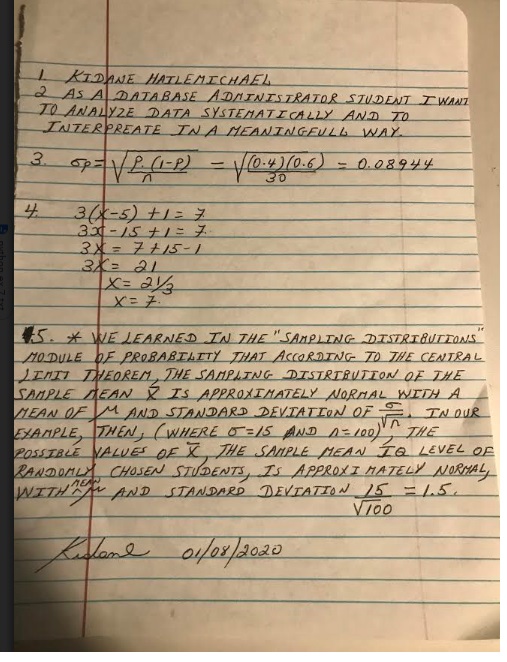 1. KIDANE HAILEMICHAEL
2 AS A DATABASE ADMINISTRATOR STUDENT I WANT
TO ANALYZE DATA SYSTEMATICALLY AND TO
INTERPREATE IN A MEANINGFULL WAY.
3. σp = √(P.(1-P)/n) = √((0.4)(0.6)/30) = 0.08944
4. 3(X-5) + 1 = 7
3X - 15 + 1 = 7
3X = 7 + 15 - 1
3X = 21
X = 21/3
X = 7.
5. * WE LEARNED IN THE "SAMPLING DISTRIBUTIONS"
MODULE OF PROBABILITY THAT ACCORDING TO THE CENTRAL
LIMIT THEOREM, THE SAMPLING DISTRIBUTION OF THE
SAMPLE MEAN X̄ IS APPROXIMATELY NORMAL WITH A
MEAN OF μ AND STANDARD DEVIATION OF σ/√n. IN OUR
EXAMPLE, THEN, (WHERE σ=15 AND n=100), THE
POSSIBLE VALUES OF X̄, THE SAMPLE MEAN IQ LEVEL OF
RANDOMLY CHOSEN STUDENTS, IS APPROXIMATELY NORMAL,
WITH MEAN μ AND STANDARD DEVIATION 15/√100 = 1.5.
Kidane 01/08/2020